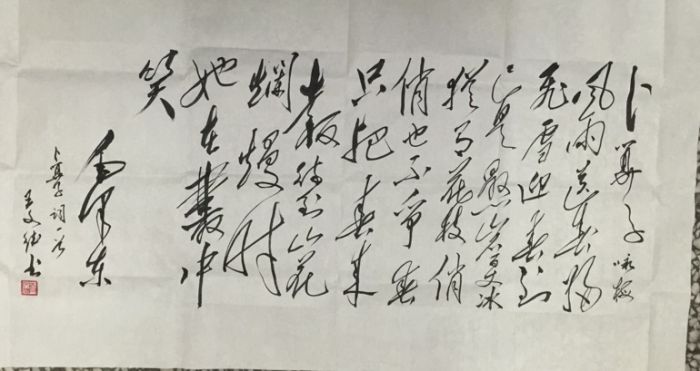 卜算子 咏梅
风雨送春归
飞雪迎春到
已是悬崖百丈冰
犹有花枝俏
俏也不争春
只把春来
报待到山花
烂熳时
她在丛中
笑
毛泽东
卜算子词一首
书